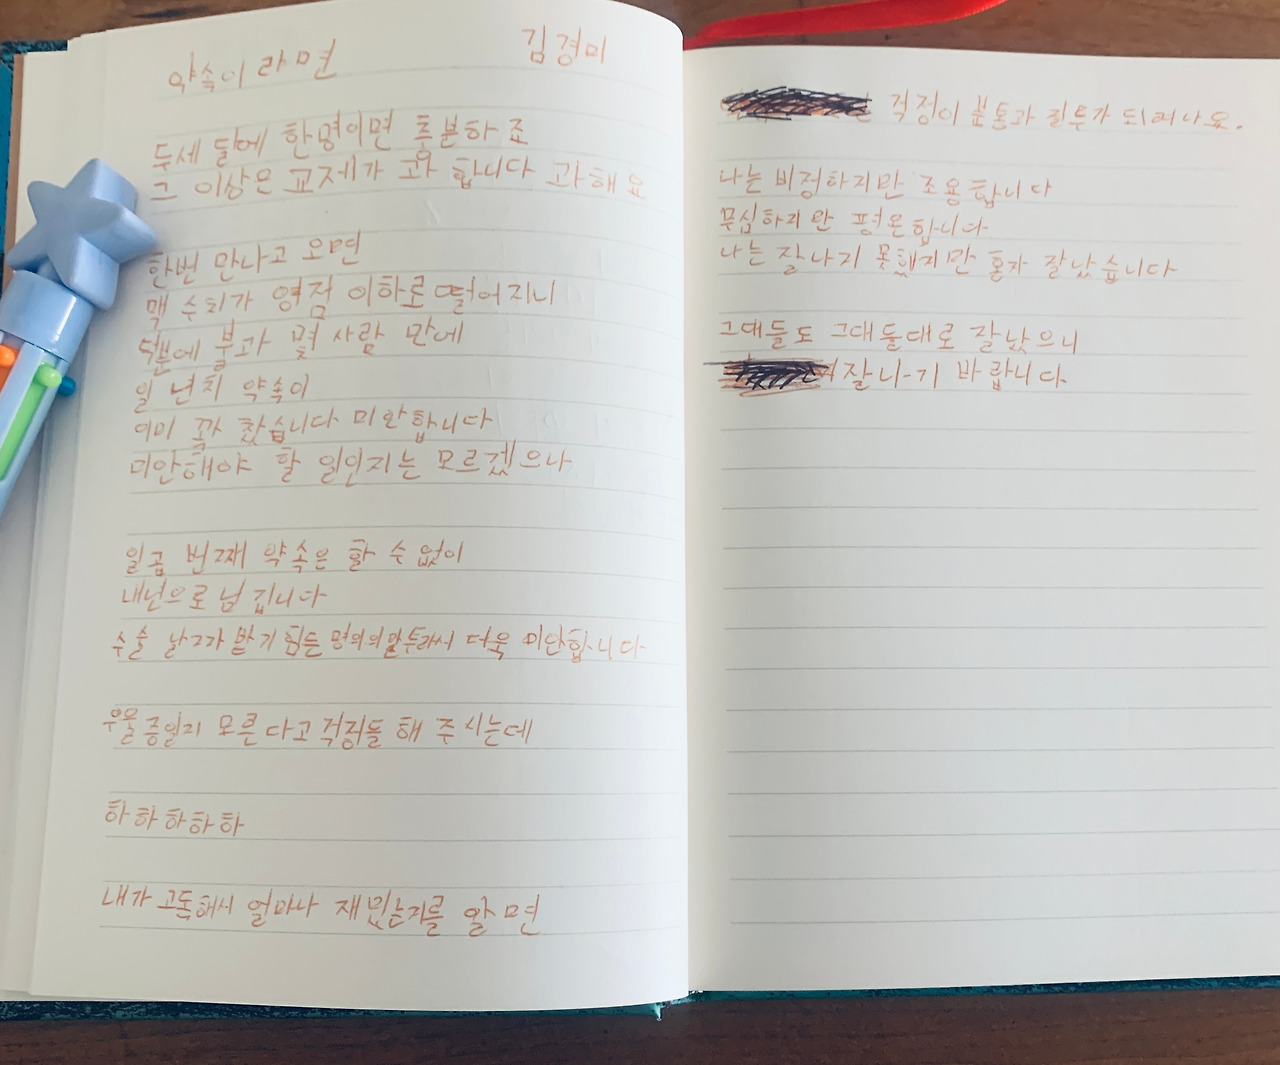 약속이라면 김경미
두세 달에 한명이면 충분하죠
그 이상은 교제가 과 합니다 과해요
한번 만나고 오면
맥 수치가 영점 이하로 떨어지니
5분에 불과 몇 사람 만에
일 년치 약속이
이미 꽉 찼습니다 미안합니다
미안해야 할 일인지는 모르겠으나
일곱 번째 약속은 할 수 없이
내년으로 넘깁니다
수술 날짜 받기 힘든 명의의 말투라서 더욱 미안합니다
우울증일지 모른다고 걱정들 해 주시는데
하하하하하
내가 고독해서 얼마나 재밌는지를 알면
걱정이 분통과 질투가 되려나요.
나는 비정하지만 조용합니다
무심하지만 평온합니다
나는 잘나지 못했지만 혼자 잘났습니다
그대들도 그대들대로 잘났으니
잘나기 바랍니다